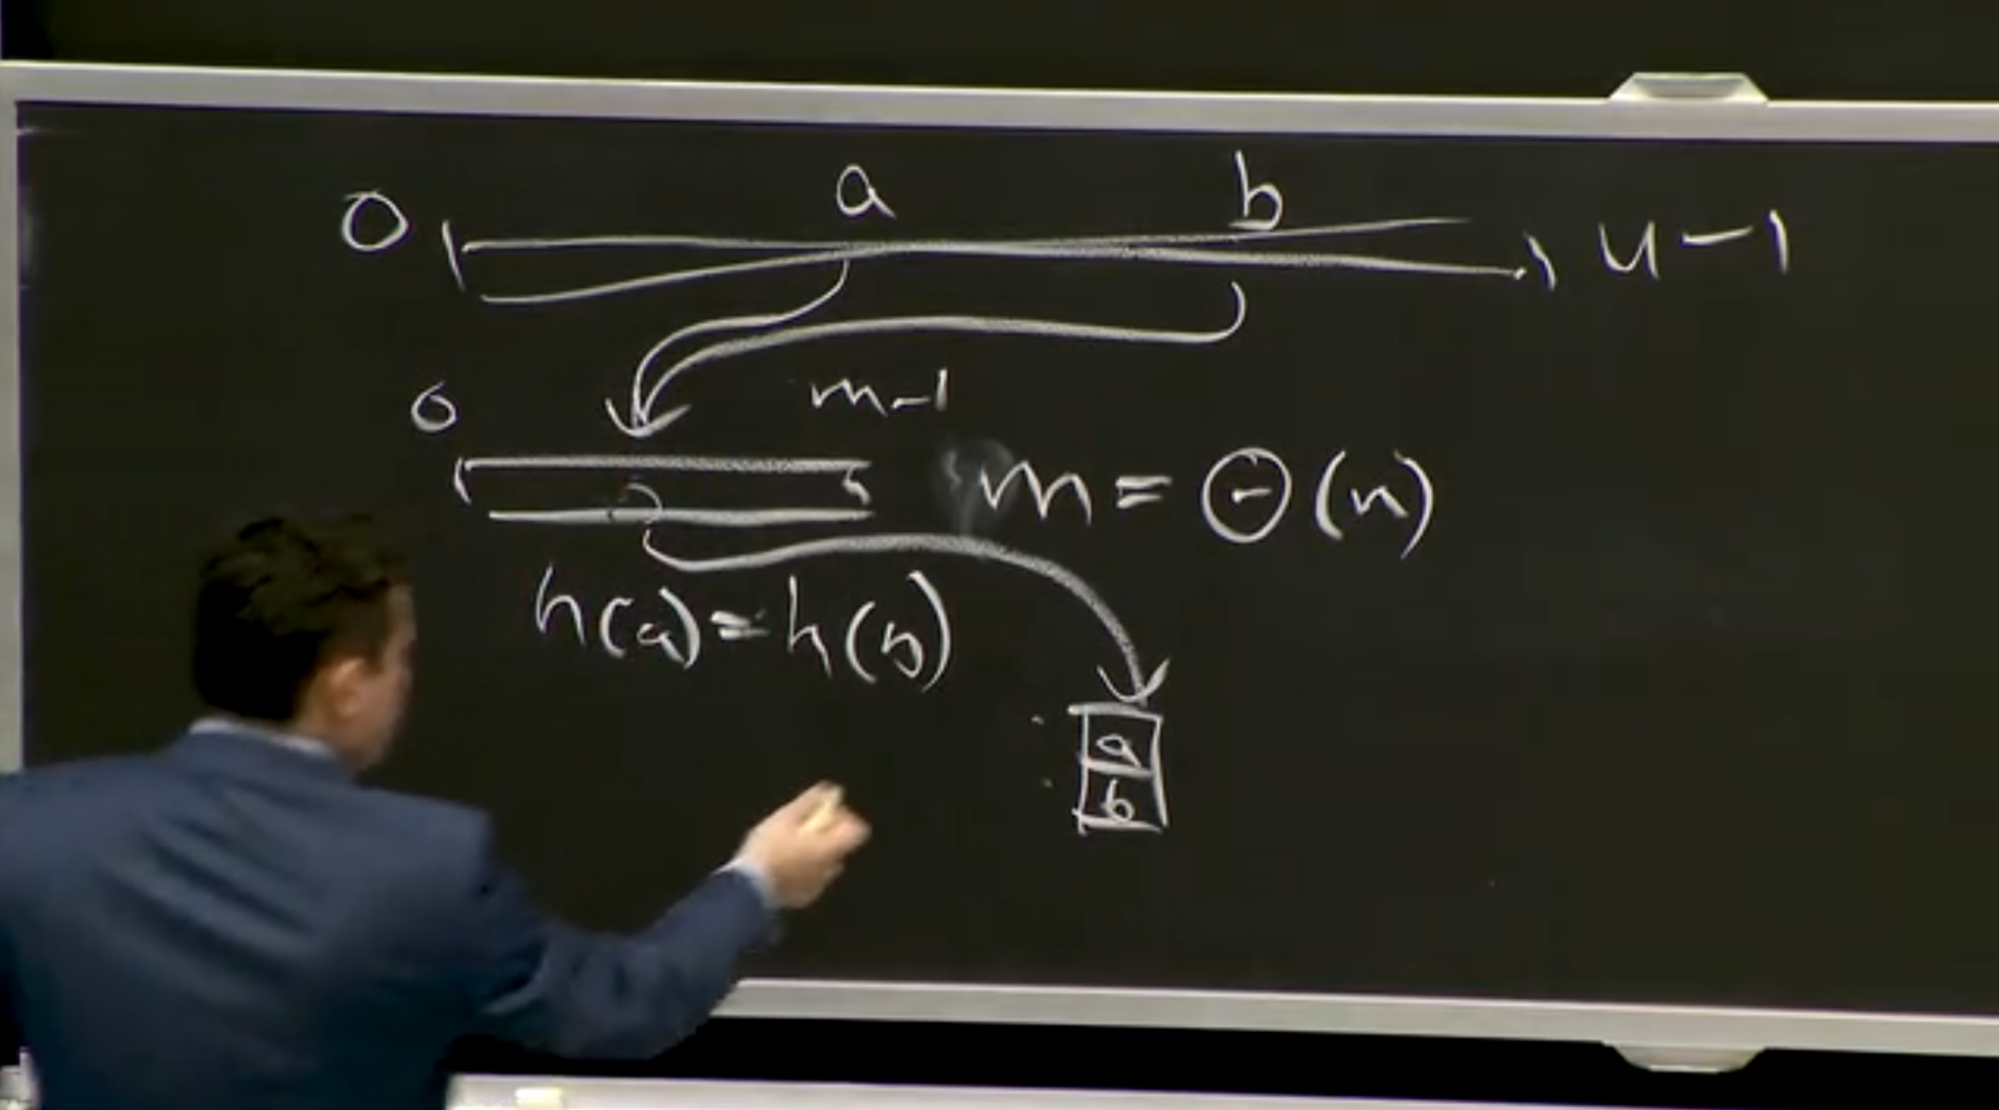 0 a b u-1
0 m-1
m = Θ(n)
h(a) = h(b)
a
b